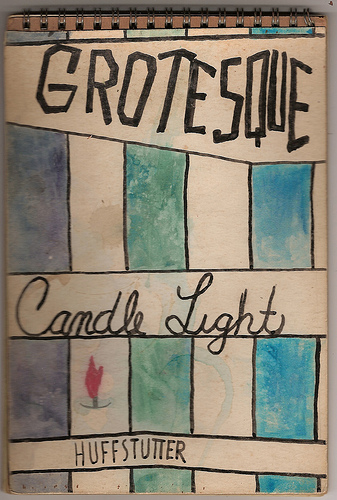 GROTESQUE
Candle Light
HUFFSTUTTER